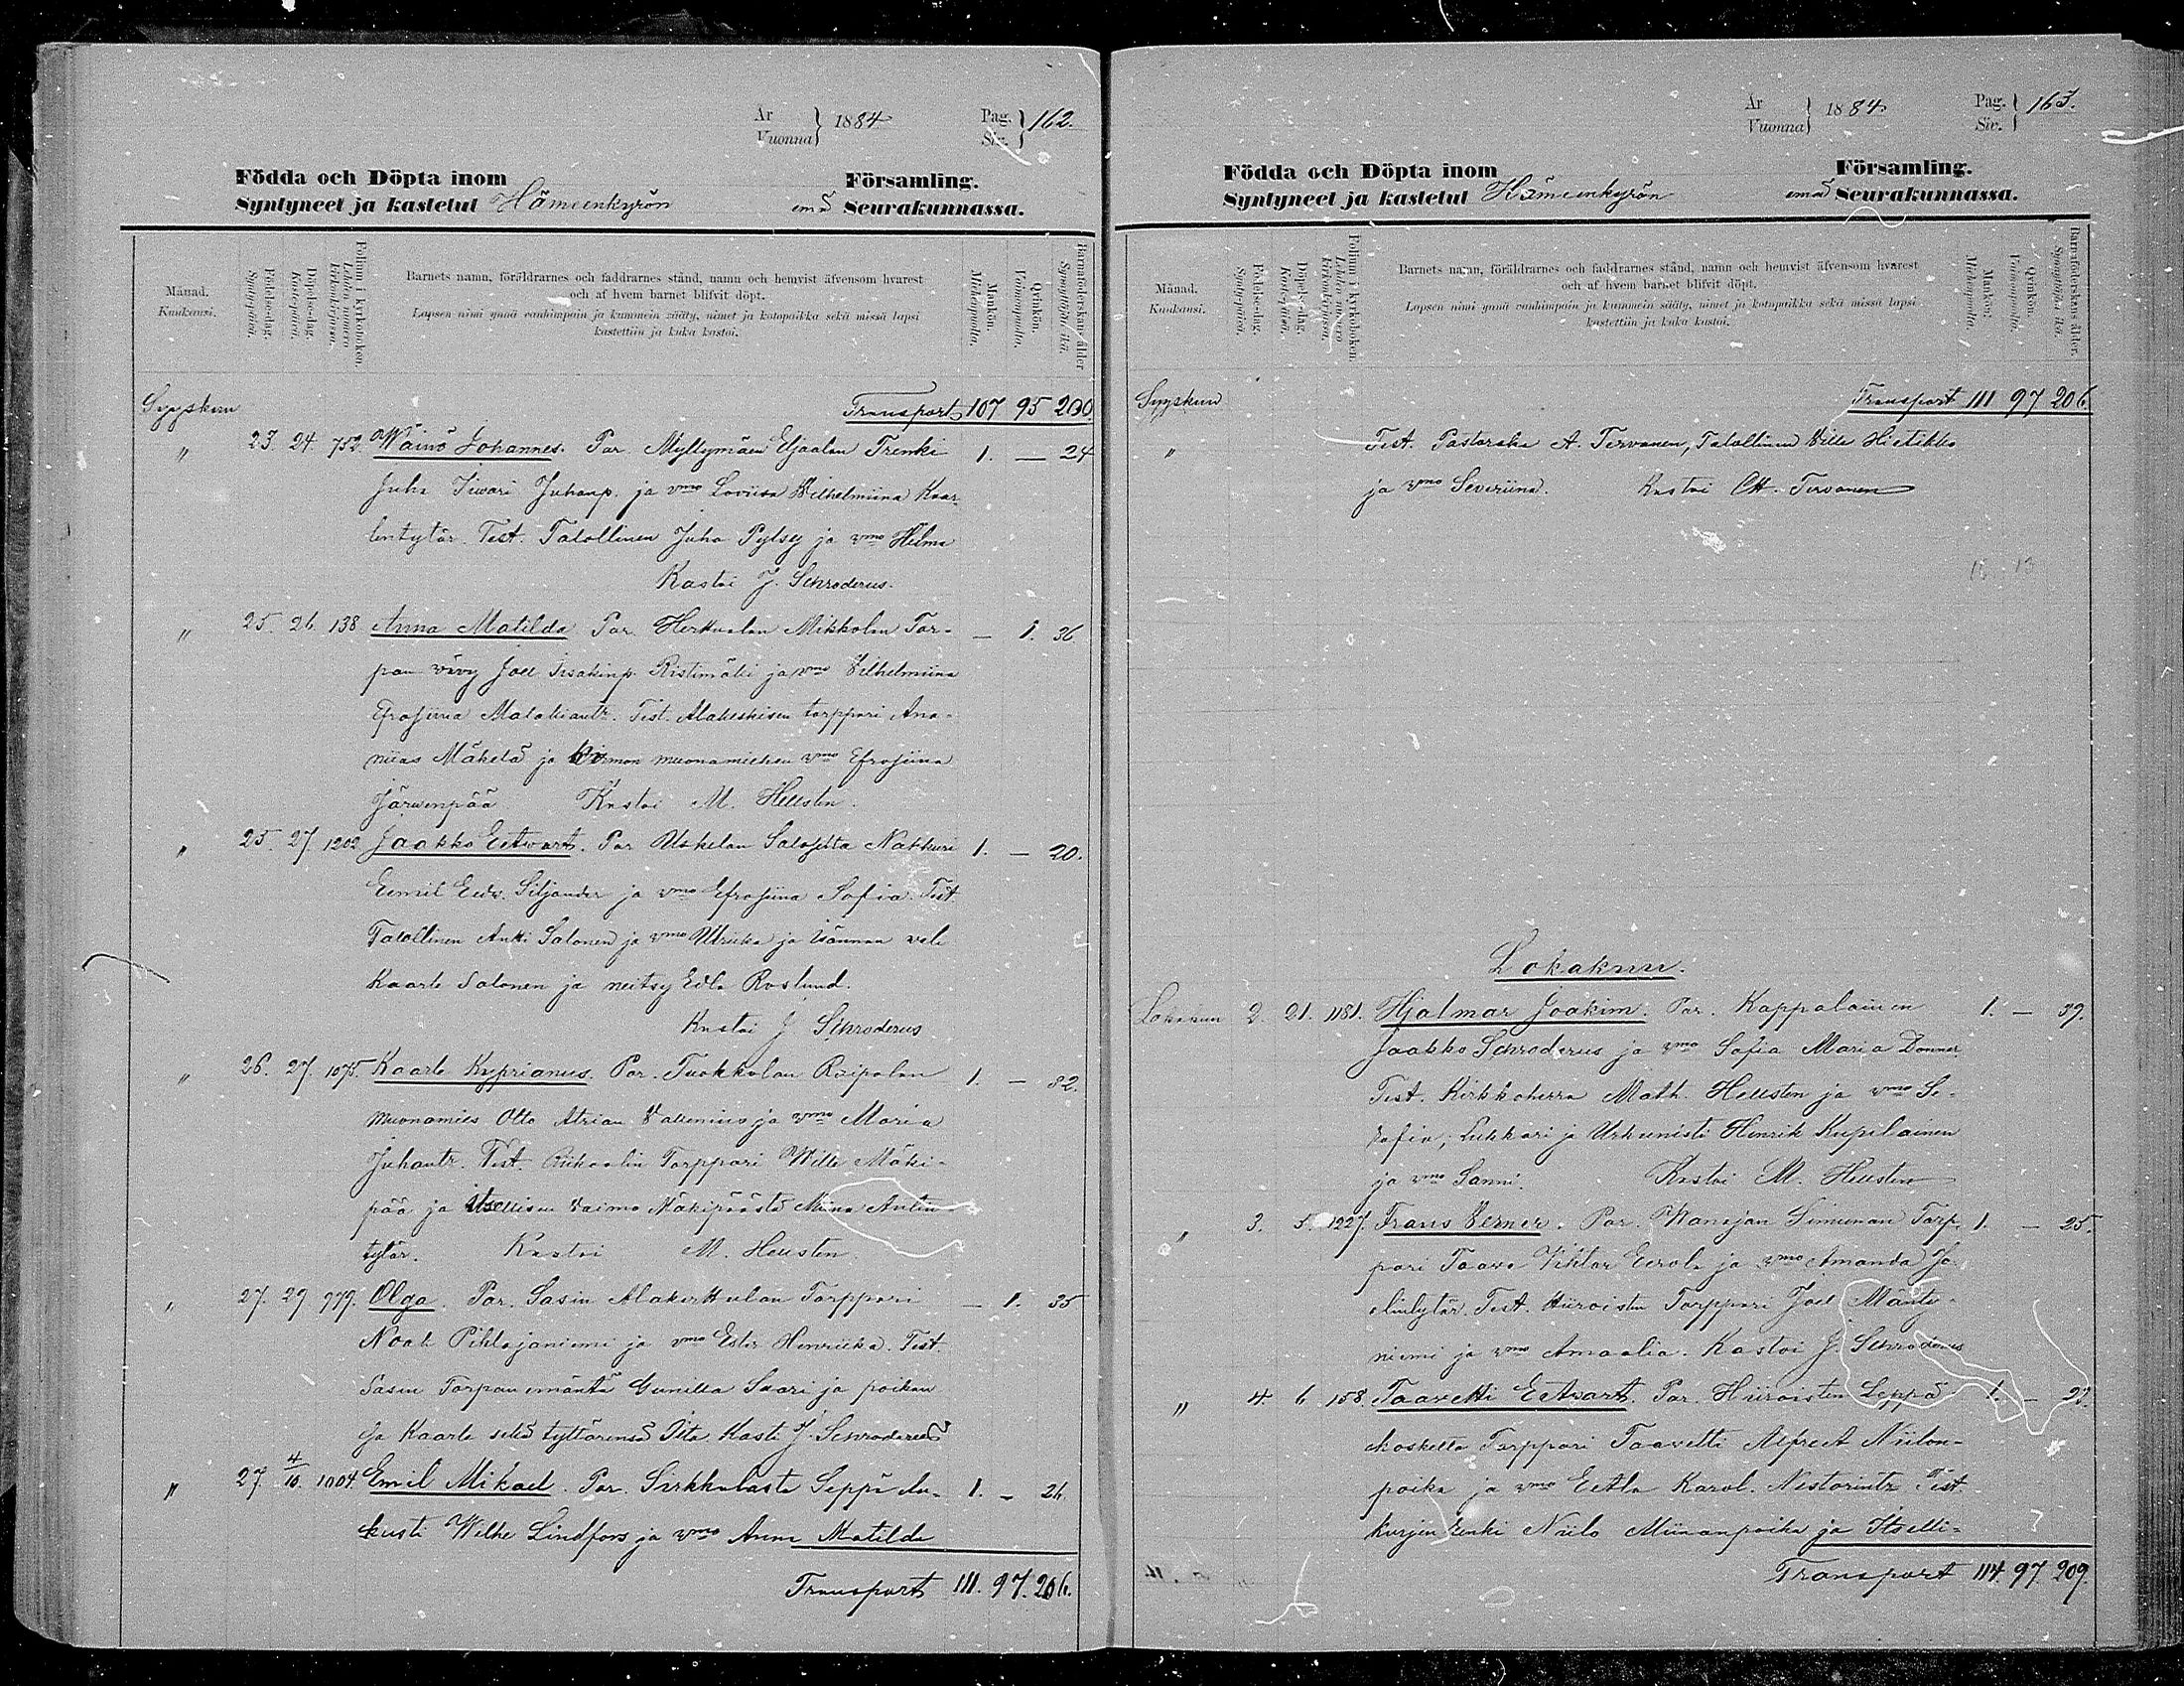 År
Vuonna } 1884.
Pag.
Siv. } 162.
Födda och Döpta inom Församling.
Syntyneet ja kastetut Hämeenkyrön emä Seurakunnassa.
Månad.
Kuukausi.
Födelse-dag.
Syntypäivä.
Döpelse-dag.
Kastepäivä.
Folium i kyrkoboken.
Lehden numero kirkonkirjassa.
Barnets namn, föräldrarnes och faddrarnes stånd, namn och hemvist äfvensom hvarest
och af hvem barnet blifvit döpt.
Lapsen nimi ynnä vanhimpain ja kummein sääty, nimet ja kotopaikka sekä missä lapsi
kastettiin ja kuka kastoi.
Mankön.
Miehenpuolia.
Qvinkön.
Vaimonpuolia.
Barnaföderskans ålder.
Synnyttäjän ikä.
Syyskuu Transport 107 95 200
" 23. 24. 752. Wäinö Johannes. Par. Myllymäen Eljaalan Trenki 1. — 24
Juha Iiwari Juhanp. ja vmo Loviisa Wilhelmiina Kaar-
lentytär. Test. Talollinen Juho Pylsy ja vmo Helma
Kastoi J. Schroderus.
" 25. 26. 138 Anna Matilda. Par. Herttualan Mikkolan Tor- — 1. 36
pan vävy Joel Iisakinp. Ristimäki ja vmo Vilhelmiina
Efrosiina Malakiantr. Test. Alakeskisen torppari Ana-
niias Mäkelä ja Kirmon muonamiehen vmo Efrosiina
Järwenpää. Kastoi M. Hellsten.
" 25. 27. 1202 Jaakko Eetwart. Par. Uskelan Salosta Nahkuri 1. — 20.
Eemil Edw. Siljander ja vmo Efrosiina Sofia. Test.
Talollinen Antti Salonen ja vmo Ulriika ja isännän veli
Kaarle Salonen ja neitsy Edla Roslund.
Kastoi J Schroderus
" 26. 27. 1075. Kaarle Kyprianus. Par. Tuokkolan Raipalan 1. — 32.
muonamies Otto Atrian Vallenius ja vmo Maria
Juhantr. Test. Torppari Wille Mäki-
pää ja itsellisen vaimo Mäkipäästä Miina Antin-
tytär. Kastoi M. Hellsten.
" 27. 29 979. Olga. Par. Sasin Alakerttulan Torppari — 1. 35
Noak Pihlajaniemi ja vmo Ester Henriika. Test.
Sasin Torpan emäntä Gunilla Saari ja poikan
ja Kaarle sekä tyttärensä Iita. Kasti J. Schroderus
" 27. 4/10. 1004. Emil Mikael. Par. Sirkkalasta Seppä Au- 1. — 26.
kusti Wilhe Lindfors ja vmo Anna Matilda
Transport 111. 97. 206.
År
Vuonna } 1884.
Pag.
Siv. } 163.
Födda och Döpta inom Församling.
Syntyneet ja kastetut Hämeenkyrön emä Seurakunnassa.
Månad.
Kuukausi.
Födelse-dag.
Syntypäivä.
Döpelse-dag.
Kastepäivä.
Folium i kyrkoboken.
Lehden numero kirkonkirjassa.
Barnets namn, föräldrarnes och faddrarnes stånd, namn och hemvist äfvensom hvarest
och af hvem barnet blifvit döpt.
Lapsen nimi ynnä vanhimpain ja kummein sääty, nimet ja kotopaikka sekä missä lapsi
kastettiin ja kuka kastoi.
Mankön.
Miehenpuolia.
Qvinkön.
Vaimonpuolia.
Barnaföderskans ålder.
Synnyttäjän ikä.
Syyskuu Transport 111 97 206.
" Test. Pastorska A. Tervonen, Talollinen Ville Hietikko
ja vmo Severiina. Kastoi Ott. Tervonen
13
Lokakuu.
Lokakuu 2. 21. 1181. Hjalmar Joakim. Par. Kappalainen 1. — 39.
Jaakko Schroderus ja vmo Sofia Maria Donner
Test. Kirkkoherra Math. Hellsten ja vmo Se-
rafia; Lukkari ja Urkunisti Henrik Kepilainen
ja vmo Sanni. Kastoi M. Hellsten
" 3. 5. 1227. Frans Verner. Par. Wanajan Simunan Torp- 1. — 25.
pari Taave Vihtor Eerola ja vmo Amanda Jo-
elintytär. Test. Hiiroisten Torppari Joel Mänty-
niemi ja vmo Amaalia. Kastoi J. Schroderus
" 4. 6 158. Taavetti Eetvart. Par. Hiiroisten Leppä- 1. — 27.
koskella Torppari Taavetti Alfred Niilon-
poika ja vmo Eetla Karol. Nestorintr. Test.
Kurjen renki Niilo Miinanpoika ja Itselli-
Transport 114. 97. 209.